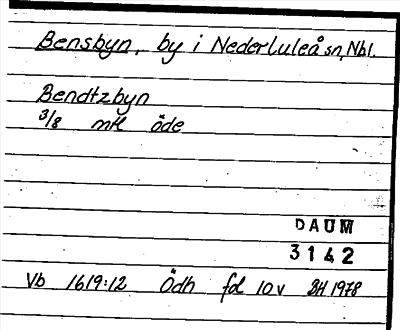 Bensbyn, by i Nederluleå sn, Nbl.
Bendtzbyn
3/8 mtl öde
DAUM
3142
Vb 1619:12 Ödh fol 10 v BH 1978